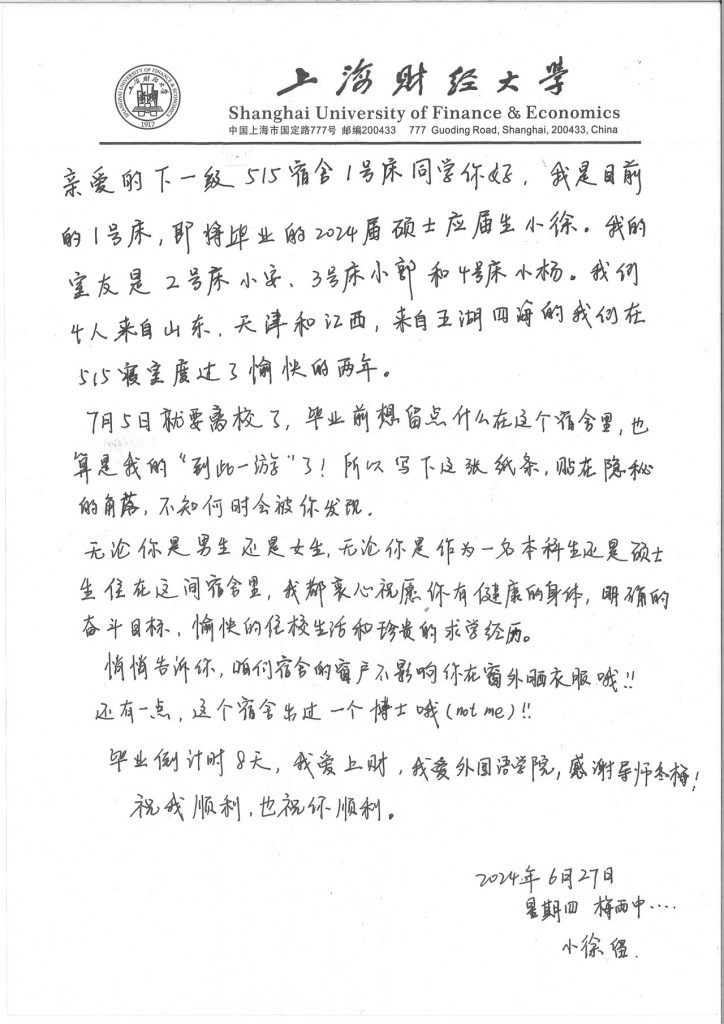 上海财经大学
Shanghai University of Finance & Economics
中国上海市国定路777号 邮编200433 777 Guoding Road, Shanghai, 200433, China
SHANGHAI UNIVERSITY OF FINANCE & ECONOMICS
上海财经大学
1917
亲爱的下一级515宿舍1号床同学你好，我是目前
的1号床，即将毕业的2024届硕士应届生小徐。我的
室友是2号床小安、3号床小郭和4号床小杨。我们
4人来自山东、天津和江西，来自五湖四海的我们在
515寝室度过了愉快的两年。
7月5日就要离校了，毕业前想留点什么在这个宿舍里，也
算是我的“到此一游”了！所以写下这张纸条，贴在隐秘
的角落，不知何时会被你发现.
无论你是男生还是女生，无论你是作为一名本科生还是硕士
生住在这间宿舍里，我都衷心祝愿你有健康的身体，明确的
奋斗目标，愉快的住校生活和珍贵的求学经历。
悄悄告诉你，咱们宿舍的窗户不影响你在窗外晒衣服哦!!
还有一点，这个宿舍出过一个博士哦(not me)!!
毕业倒计时8天，我爱上财，我爱外国语学院，感谢导师冬梅！
祝我顺利，也祝你顺利。
2024年6月27日
星期四 梅雨中....
小徐留.